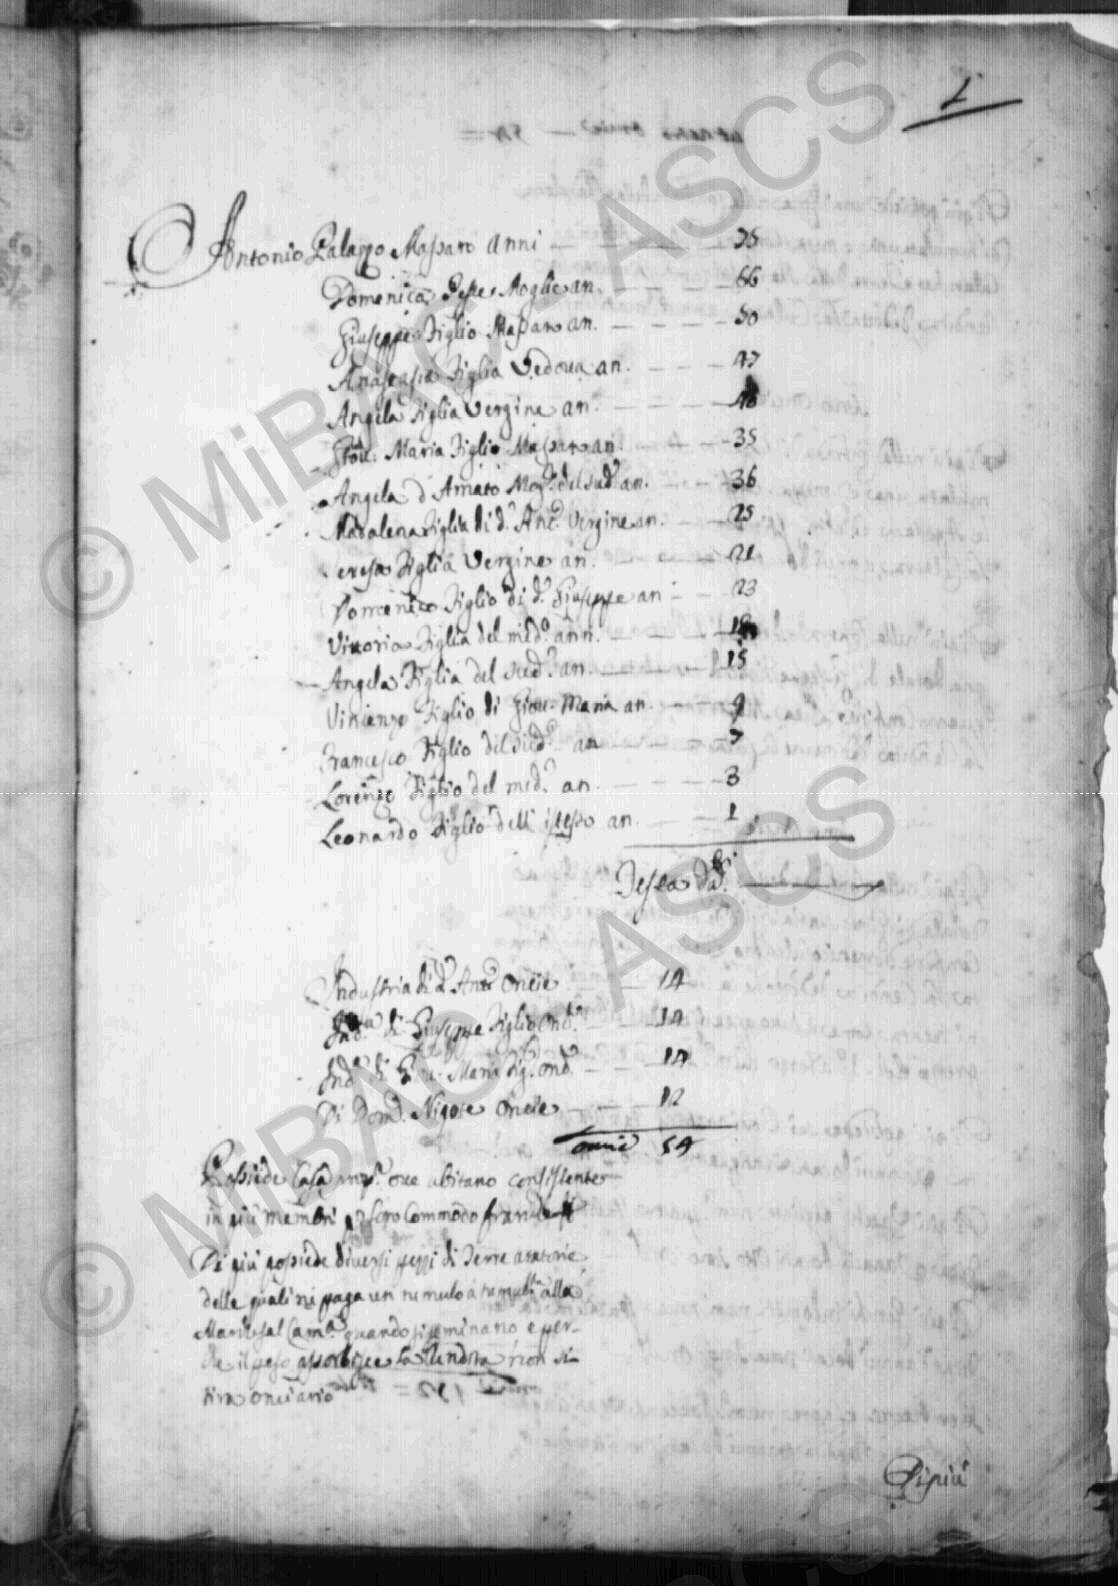 1
Antonio Palazzo Massaro anni — 75
Domenica Pesse Moglie an. — 66
Giuseppe figlio Massaro an. — 50
Anastasia figlia Vedova an. — 47
Angela figlia Vergine an. — 40
Giou: Maria figlio Massaro an. — 35
Angela d'Amato Mog.e del sud.o an. — 36
Madalena figlia di d.o Ant.o Vergine an. — 25
eresa figlia Vergine an. — 21
Domenico figlio di d.o Giuseppe an — 23
Vittoria figlia del med.o ann. — 18
Angela figlia del sud.o an. — 15
Vincenzo figlio di Giou: Maria an. — 9
Francesco figlio del sud.o an — 7
Lorenzo figlio del med.o an. — 3
Leonardo figlio dell'istesso an. — 1
Testa
Industria di d.o Ant.o Oncie — 14
Ind.a di Giuseppe figlio Onc. — 14
Ind.a di Giou: Maria fig. onc. — 14
Di Dom.o Nipote Oncie — 12
oncie 54
Possiede Casa ove abitano consistente
in più membri p loro Commodo franca
Di più possiede diversi pezzi di Terre aratorie
delle quali ni paga un tumulo a tumul.ta alla
Marchesal Cam.a quando si seminano, e per-
che il peso assorbisce la rendita non si
tira onciario
Di più
© MiBAC - ASCS
© MiBAC - ASCS